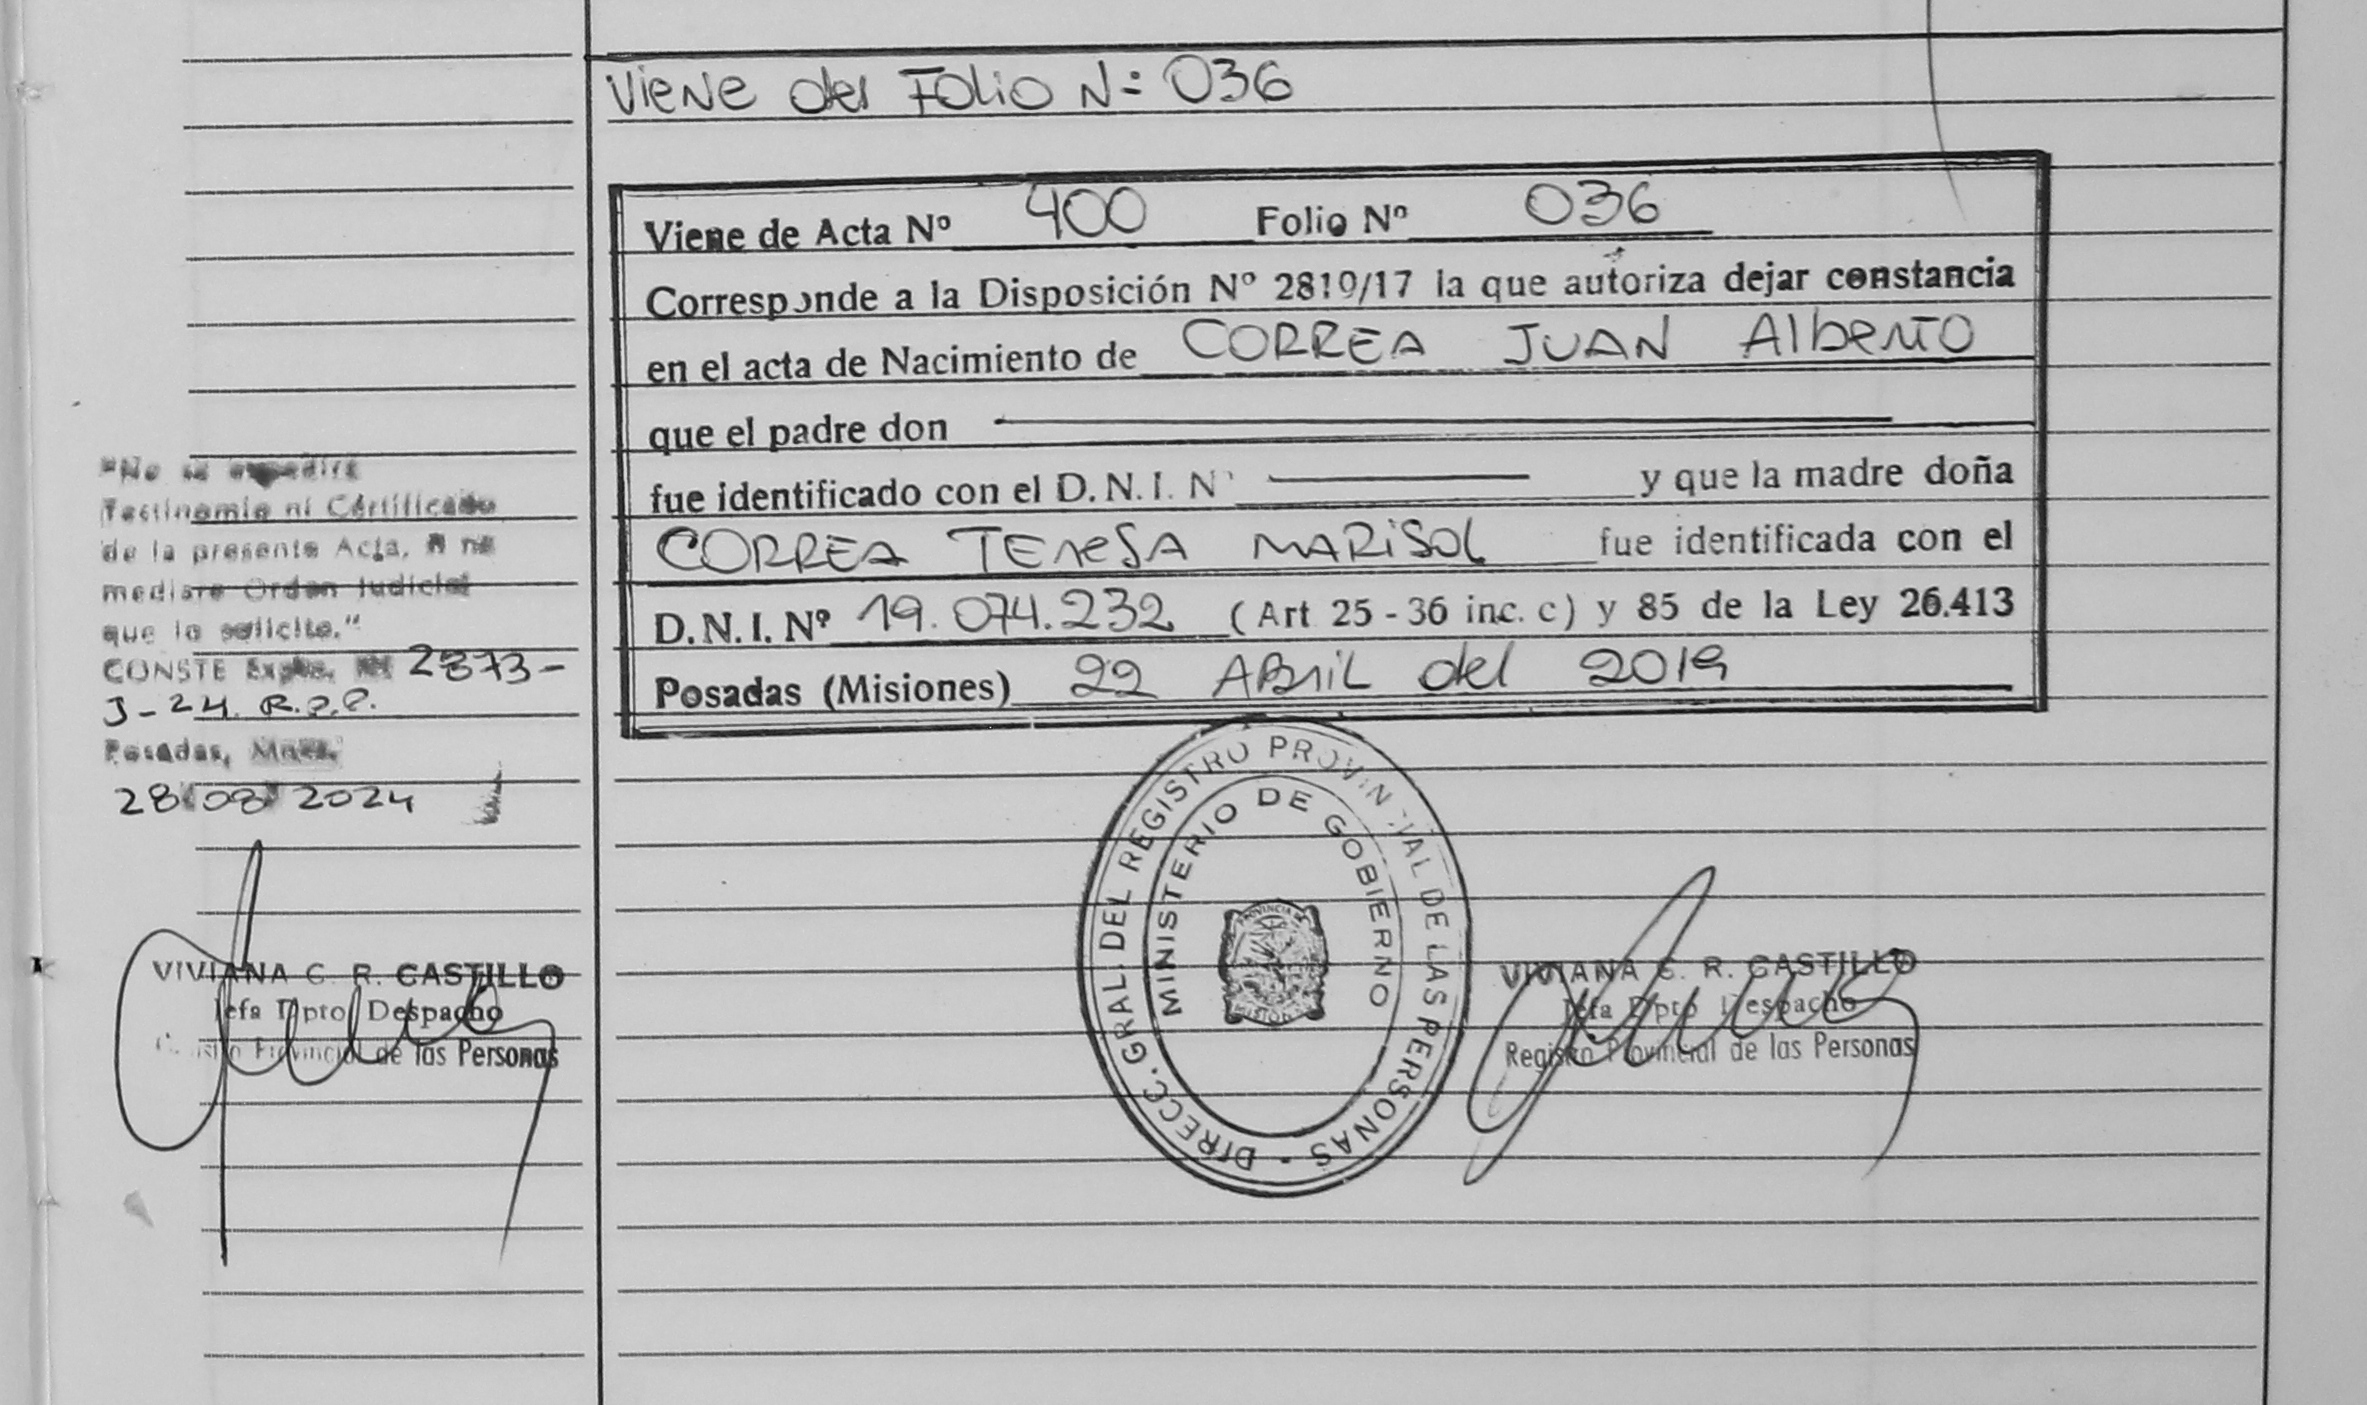 Viene del Folio N: 036
Viene de Acta Nº 400 Folio Nº 036
Corresponde a la Disposición Nº 2819/17 la que autoriza dejar constancia
en el acta de Nacimiento de CORREA JUAN Alberto
que el padre don
fue identificado con el D. N. I. N y que la madre doña
CORREA TEreSA MARISOL fue identificada con el
D. N. I. Nº 19.074.232 (Art 25 - 36 inc. c) y 85 de la Ley 26.413
Posadas (Misiones) 22 ABril del 2019
"No se expedirá
Testinomio ni Certificado
de la presente Acta, si no
mediare Orden Judicial
que lo solicite."
CONSTE Expte. Nº 2873-
J-24. R.P.P.
Posadas, Mnes.
28/08/2024
VIVIANA C. R. CASTILLO
Jefa Dpto Despacho
Registro Provincial de las Personas
DIRECC. GRAL. DEL REGISTRO PROVINCIAL DE LAS PERSONAS -
MINISTERIO DE GOBIERNO
PROVINCIA DE
MISIONES
VIVIANA C. R. CASTILLO
Jefa Dpto Despacho
Registro Provincial de las Personas